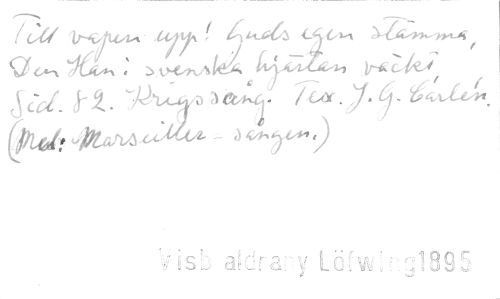 Till vapen upp! Guds egen stämma,
Den Han i svenska hjärtan väckt
Sid. 82. Krigssång. Tex. J. G. Carlén.
(Mel: Marseiller-sången.)
Visb aldrany Löfwing1895